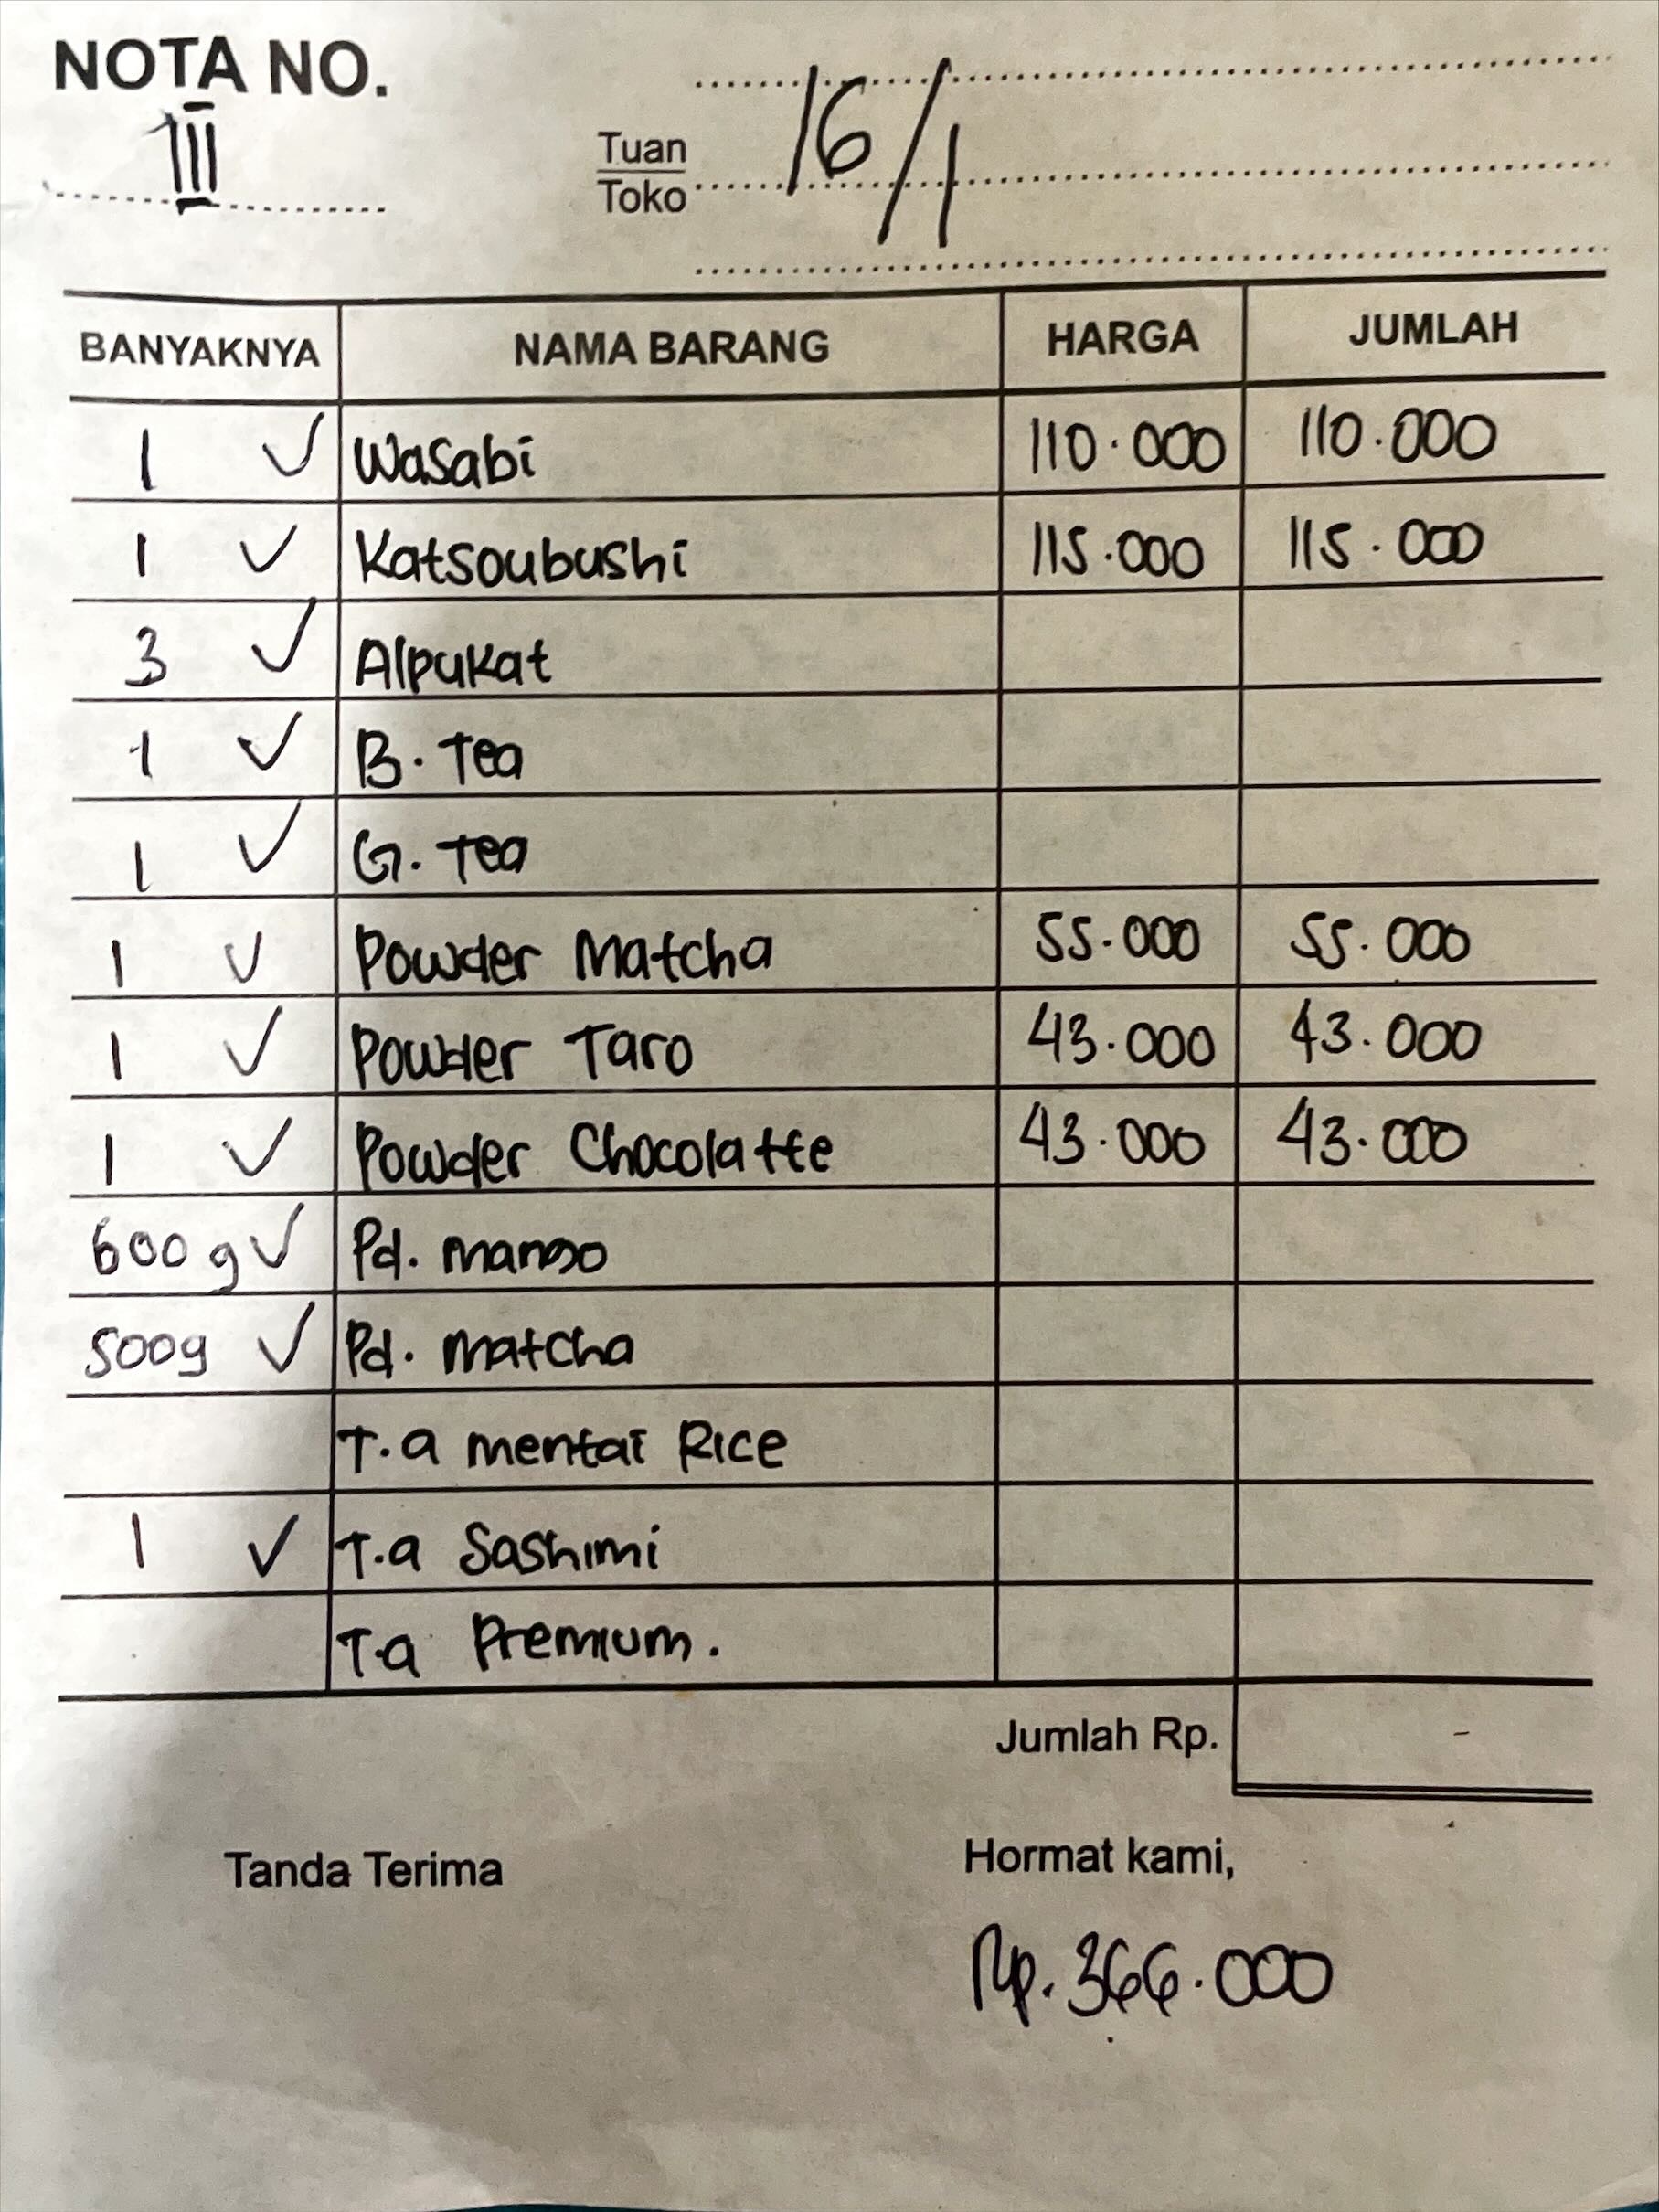 NOTA NO.
III
Tuan
Toko
16/1
BANYAKNYA NAMA BARANG HARGA JUMLAH
1 ✓ Wasabi 110.000 110.000
1 ✓ Katsoubushi 115.000 115.000
3 ✓ Alpukat
1 ✓ B. Tea
1 ✓ G. Tea
1 ✓ Powder Matcha 55.000 55.000
1 ✓ Powder Taro 43.000 43.000
1 ✓ Powder Chocolatte 43.000 43.000
600 g ✓ Pd. mango
500g ✓ Pd. matcha
T.a mentai Rice
1 ✓ T.a Sashimi
T.a Premium.
Jumlah Rp. -
Tanda Terima Hormat kami,
Rp. 366.000